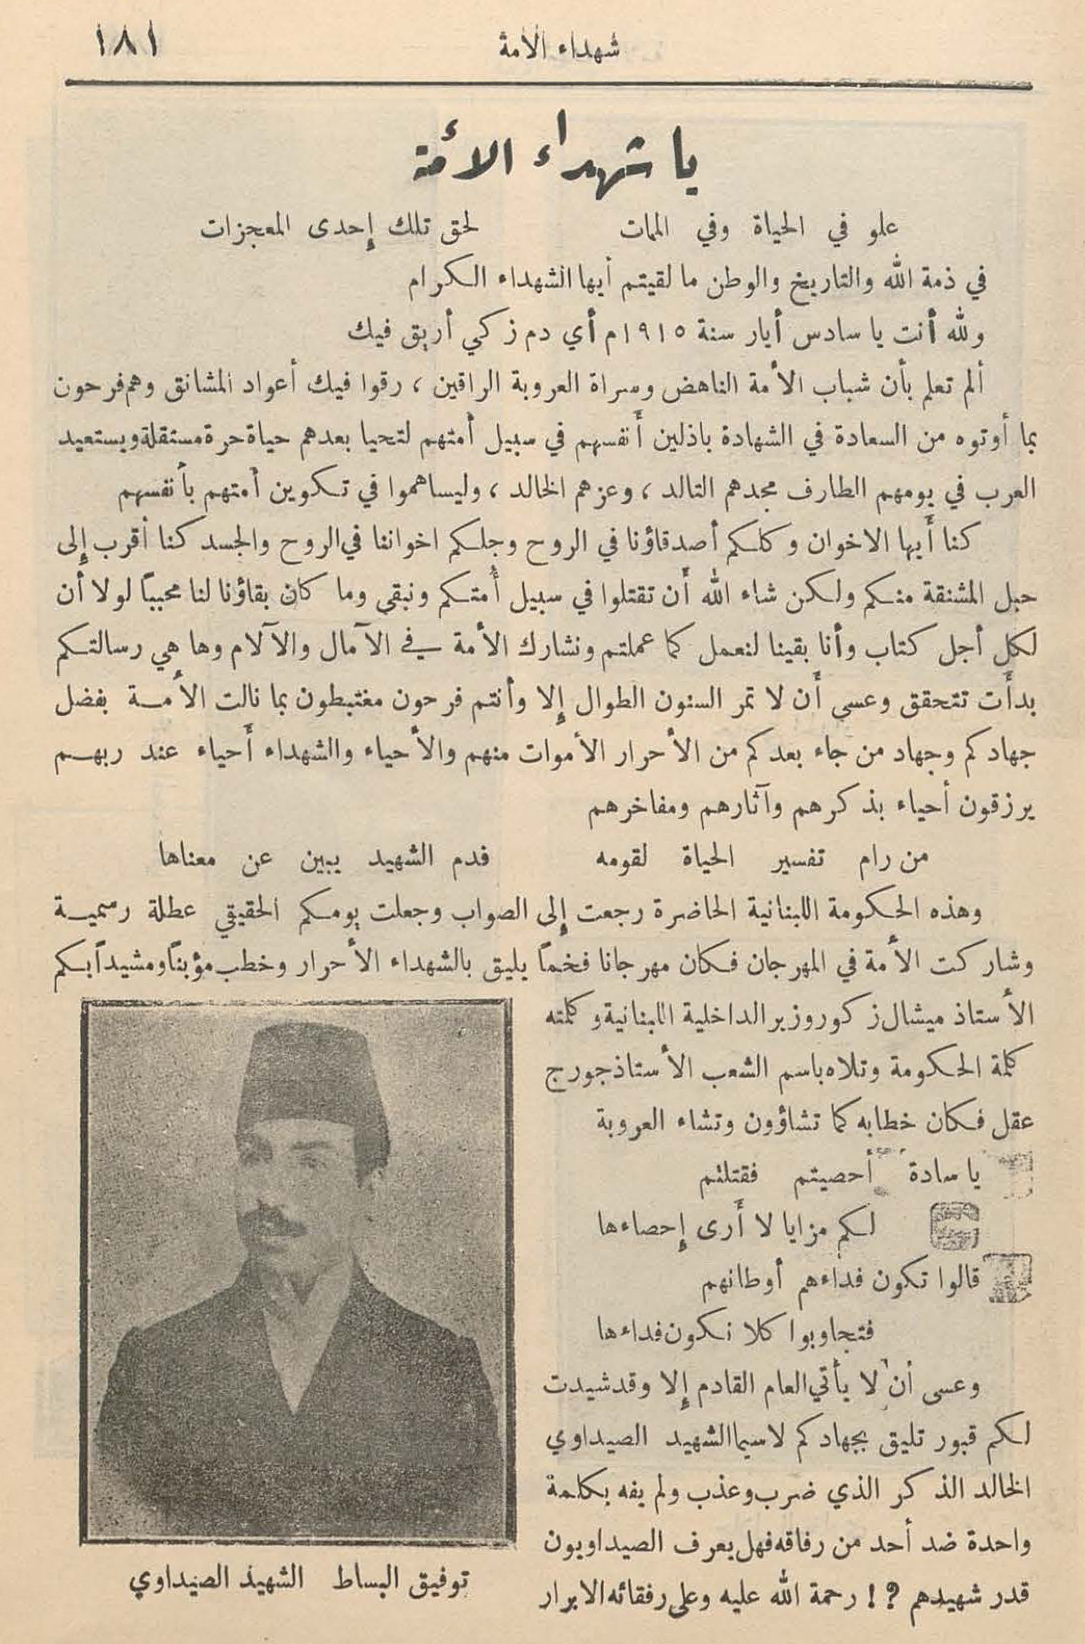 شهداء الأمة ١٨١
يا شهداء الأمة
علو في الحياة وفي الممات لحق تلك إحدى المعجزات
في ذمة الله والتاريخ والوطن ما لقيتم أيها الشهداء الكرام
ولله أنت يا سادس أيار سنة ١٩١٥م أي دم زكي أريق فيك
ألم تعلم بأن شباب الأمة الناهض وسراة العروبة الراقين ، رقوا فيك أعواد المشانق وهم فرحون
بما أوتوه من السعادة في الشهادة باذلين أنفسهم في سبيل أمتهم لتحيا بعدهم حياة حرة مستقلة ويستعيد
العرب في يومهم الطارف مجدهم التالد ، وعزهم الخالد ، وليساهموا في تكوين أمتهم بأنفسهم
كنا أيها الاخوان وكلكم أصدقاؤنا في الروح وجلكم اخواننا في الروح والجسد كنا أقرب إلى
حبل المشنقة منكم ولكن شاء الله أن تقتلوا في سبيل أمتكم ونبقى وما كان بقاؤنا لنا محببًا لولا أن
لكل أجل كتاب وأنا بقينا لنعمل كما عملتم ونشارك الأمة في الآمال والآلام وها هي رسالتكم
بدأت تتحقق وعسى أن لا تمر السنون الطوال إلا وأنتم فرحون مغتبطون بما نالت الأمة بفضل
جهادكم وجهاد من جاء بعدكم من الأحرار الأموات منهم والأحياء والشهداء أحياء عند ربهم
يرزقون أحياء بذكرهم وآثارهم ومفاخرهم
من رام تفسير الحياة لقومه فدم الشهيد يبين عن معناها
وهذه الحكومة اللبنانية الحاضرة رجعت إلى الصواب وجعلت يومكم الحقيقي عطلة رسمية
وشاركت الأمة في المهرجان فكان مهرجانا فخمًا يليق بالشهداء الأحرار وخطب مؤبنًا ومشيدًا بكم
الأستاذ ميشال زكور وزير الداخلية اللبنانية وكلمته
كلمة الحكومة وتلاه باسم الشعب الأستاذ جورج
عقل فكان خطابه كما تشاؤون وتشاء العروبة
يا سادة أحصيتم فقتلتم
لكم مزايا لا أرى إحصاءها
قالوا تكون فداءهم أوطانهم
فتجاوبوا كلا نكون فداءها
وعسى أن لا يأتي العام القادم إلا وقد شيدت
لكم قبور تليق بجهادكم لا سيما الشهيد الصيداوي
الخالد الذكر الذي ضرب وعذب ولم يفه بكلمة
واحدة ضد أحد من رفاقه فهل يعرف الصيداويون
قدر شهيدهم ؟! رحمة الله عليه وعلى رفقائه الابرار
توفيق البساط الشهيد الصيداوي